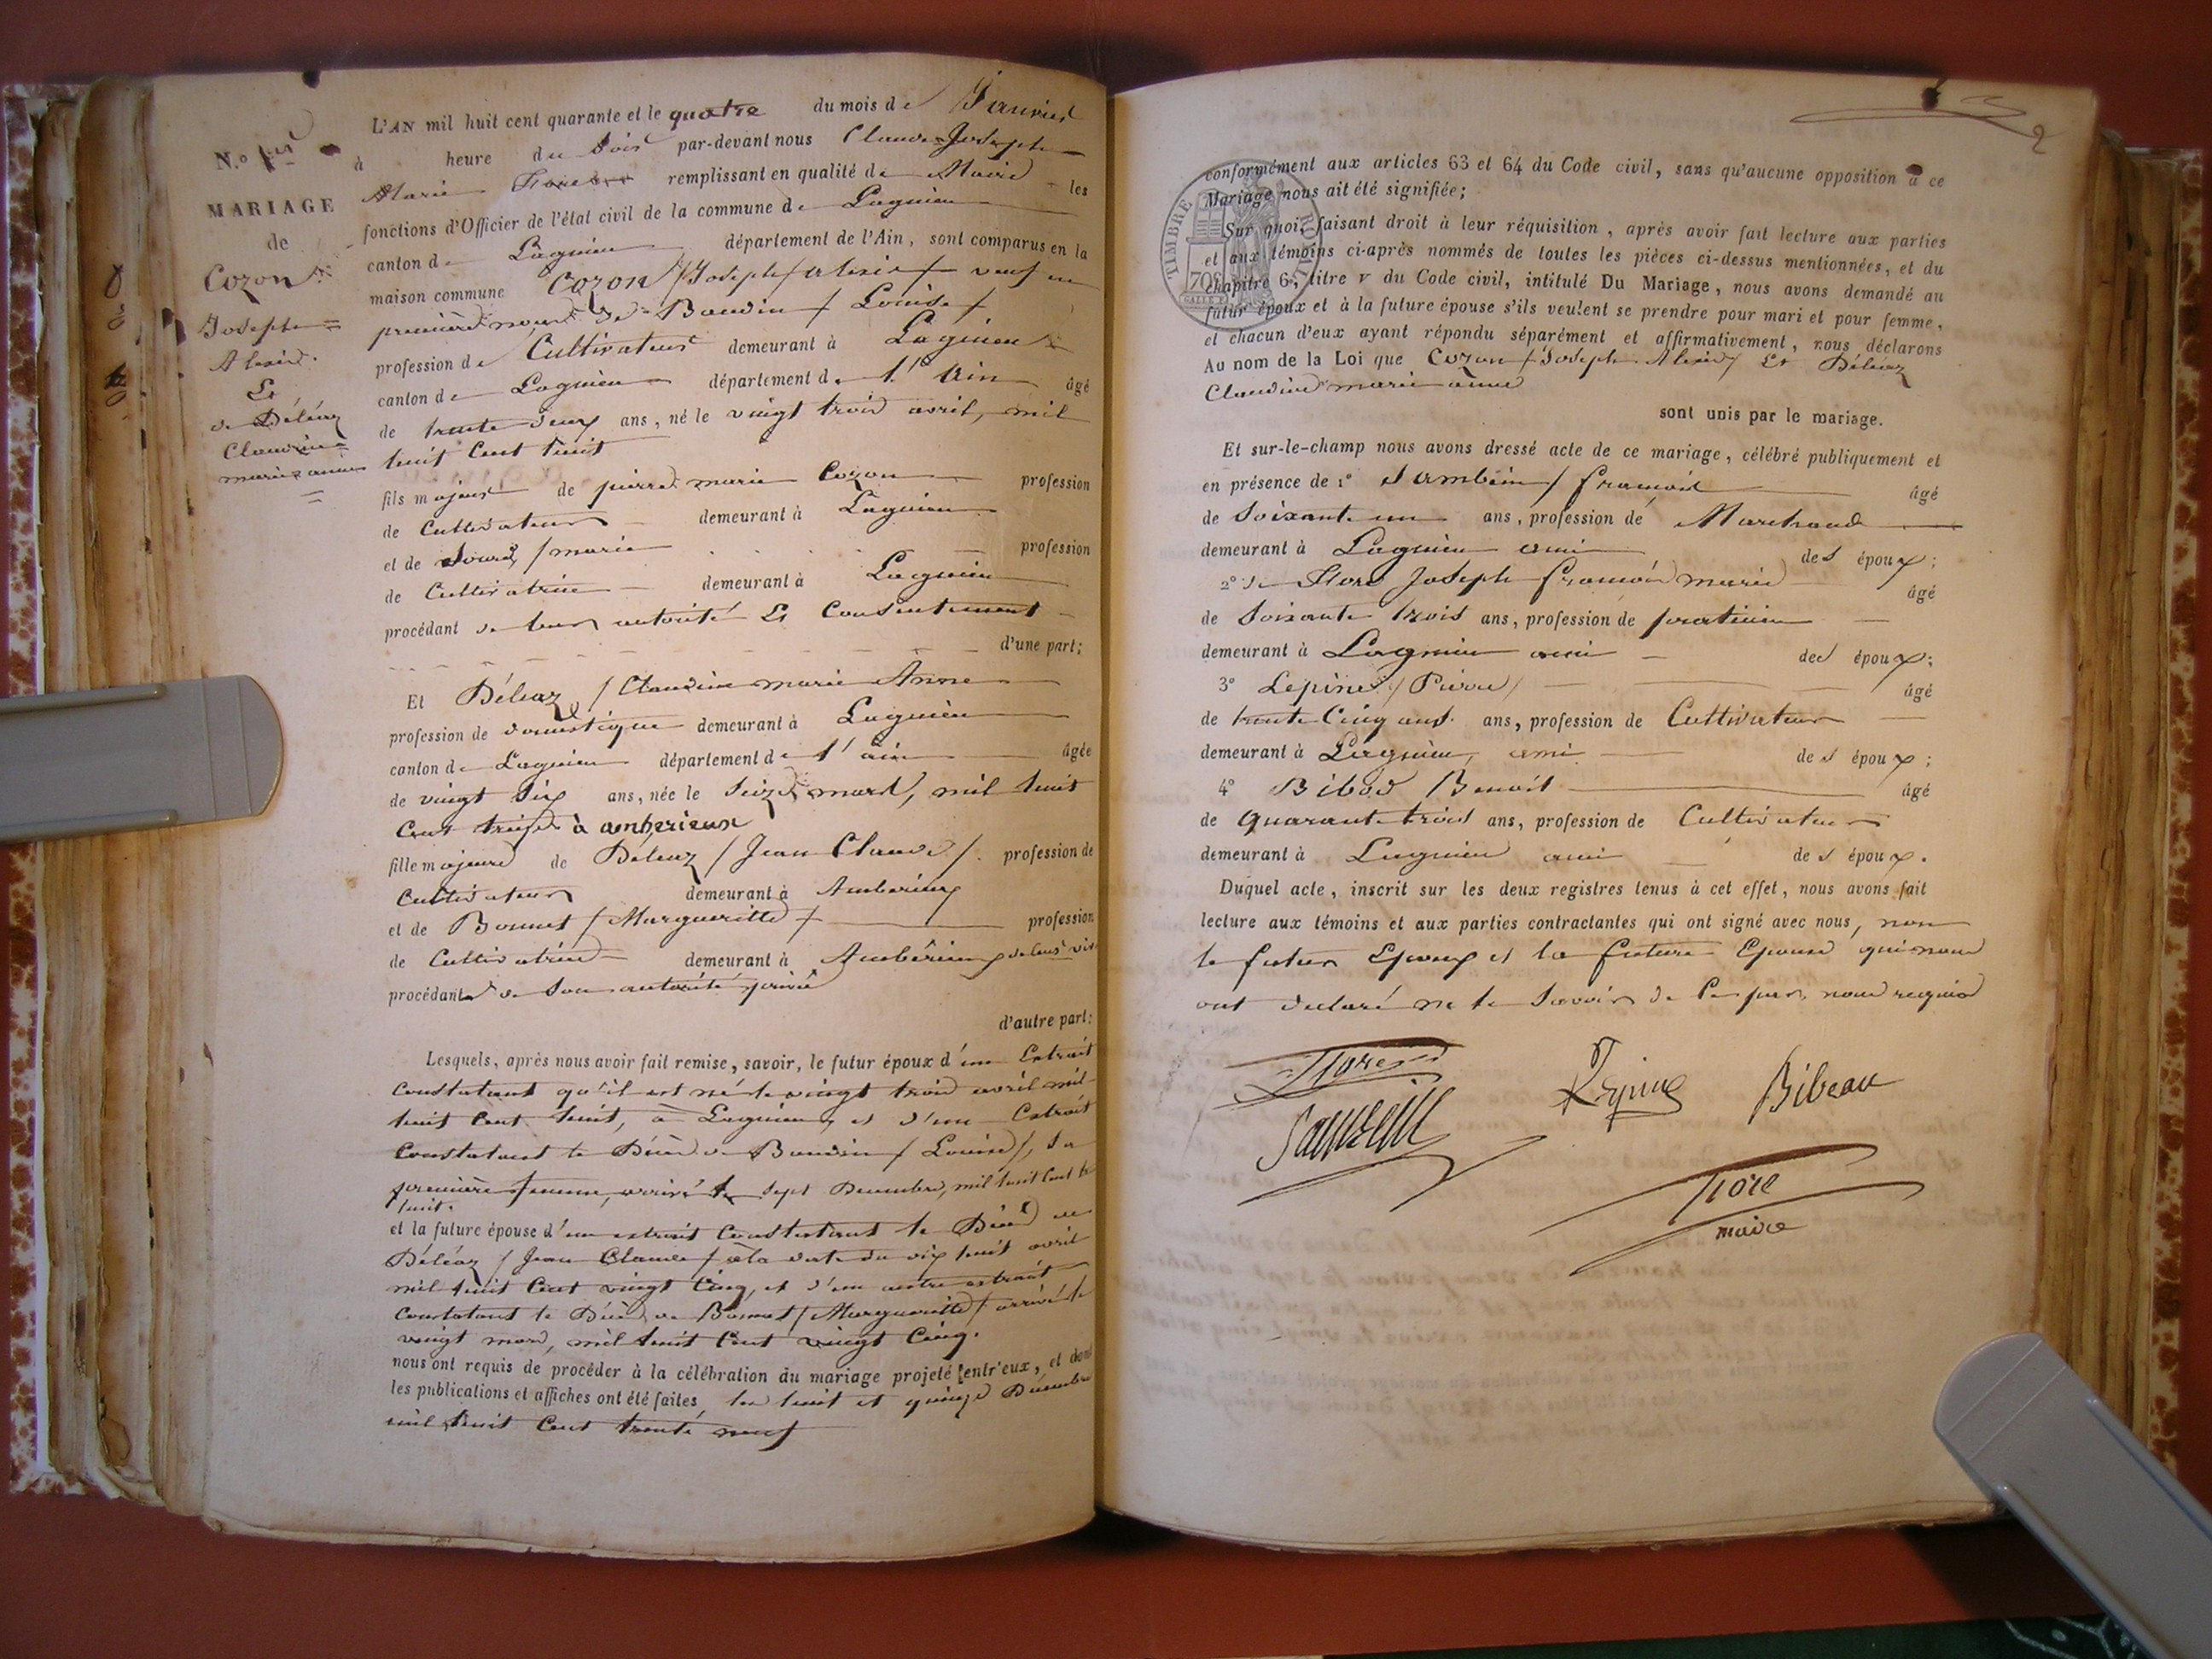 N.o
MARIAGE
de
Cozon
Joseph =
Alexis.
Et
de Déléaz
Claudine =
marie anne
=
L'AN mil huit cent quarante et le quatre du mois de Janvier
à heure du soir par-devant nous Claude Joseph
Marie remplissant en qualité de Maire les
fonctions d'Officier de l'état civil de la commune de Lagnieu
canton de Lagnieu département de l'Ain, sont comparus en la
maison commune Cozon / Joseph / Alexis / veuf en
première noces de Baudin / Louise /
profession de Cultivateur demeurant à Lagnieu
canton de Lagnieu département de l'Ain âgé
de trente deux ans, né le vingt trois avril, mil
huit Cent huit
fils majeur de pierre marie Cozon profession
de Cultivateur demeurant à Lagnieu
et de / marie profession
de Cultivatrice demeurant à Lagnieu
procédant de leur autorité Et Consentement
d'une part;
Et Déléaz / Claudine marie Anne
profession de domestique demeurant à Lagnieu
canton de Lagnieu département de l'ain âgée
de vingt six ans, née le seize mars, mil huit
Cent treize à amberieux
fille majeure de Déléaz / Jean Claude / profession de
Cultivateur demeurant à Amberieux
et de Bonnet / Margueritte / profession
de Cultivatrice demeurant à Ambérieux de leur viv
procédante de son autorité privée
d'autre part:
Lesquels, après nous avoir fait remise, savoir, le futur époux d'un Extrait
Constatant qu'il est né le vingt trois avril mil
huit Cent huit, à Lagnieu, et d'un Extrait
Constatant le Décès de Baudin / Louise /, sa
première femme, arrivé le sept Decembre, mil huit Cent tr
huit.
et la future épouse d'un extrait Constatant le Décès de
Déléaz / Jean Claude / à la date du dix huit avril
mil huit Cent vingt Cinq, et d'un autre extrait
Constatant le Décès de Bonnet / Margueritte / arrivé le
vingt mars, mil huit Cent vingt Cinq.
nous ont requis de procéder à la célébration du mariage projeté entr'eux, et dont
les publications et affiches ont été faites, les huit et quinze Décembre
mil huit Cent trente neuf
2
conformément aux articles 63 et 64 du Code civil, sans qu'aucune opposition à ce
Mariage nous ait été signifiée;
Sur quoi, faisant droit à leur réquisition, après avoir fait lecture aux parties
et aux témoins ci-après nommés de toutes les pièces ci-dessus mentionnées, et du
chapitre 6, titre v du Code civil, intitulé Du Mariage, nous avons demandé au
futur époux et à la future épouse s'ils veulent se prendre pour mari et pour femme,
et chacun d'eux ayant répondu séparément et affirmativement, nous déclarons
Au nom de la Loi que Cozon / Joseph Alexis / Et Déléaz
Claudine marie anne
sont unis par le mariage.
Et sur-le-champ nous avons dressé acte de ce mariage, célébré publiquement et
en présence de 1° Sambein / françois âgé
de soixante un ans, profession de Marchand
demeurant à Lagnieu ami des époux;
2° de Joseph françois marie âgé
de soixante trois ans, profession de praticien
demeurant à Lagnieu ami des époux;
3° Lepine / Pierre / âgé
de trente Cinq ans. ans, profession de Cultivateur
demeurant à Lagnieu, ami des époux;
4° Bibod / Benoit âgé
de quarante trois ans, profession de Cultivateur
demeurant à Lagnieu ami des époux.
Duquel acte, inscrit sur les deux registres tenus à cet effet, nous avons fait
lecture aux témoins et aux parties contractantes qui ont signé avec nous, non
le futur Epoux et la future Epouse qui nous
ont declaré ne le savoir de Ce par nous requis
Lepine Bibeau
Sambein
maire
TIMBRE ROYAL
70c